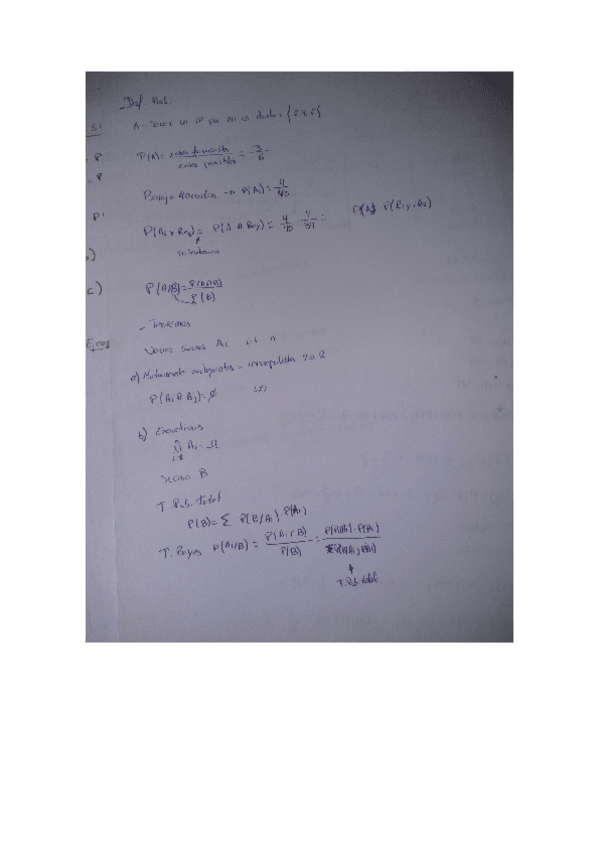 Def. Prob.
A = Sacar un nº par en un dado = {2,4,6}
P(A) = casos favorables / casos posibles = 3/6
Baraja 40 cartas → P(A) = 4/40
P(As y Rey) = P(A ∩ Rey) = 4/40 · 4/39 =
P(A/B) = P(A∩B) / P(B)
c)
Varios sucesos Ai i=1 n
a) Mutuamente excluyentes = incompatibles 2 a 2
P(Ai ∩ Aj) = ∅ i≠j
b) Exhaustivos
∪ Ai = Ω
suceso B
T. Prob. Total
P(B) = Σ P(B/Ai) · P(Ai)
T. Bayes P(Ai/B) = P(Ai ∩ B) / P(B) = P(B/Ai) · P(Ai) / Σ P(B/Ai) · P(Ai)
T. Prob. total